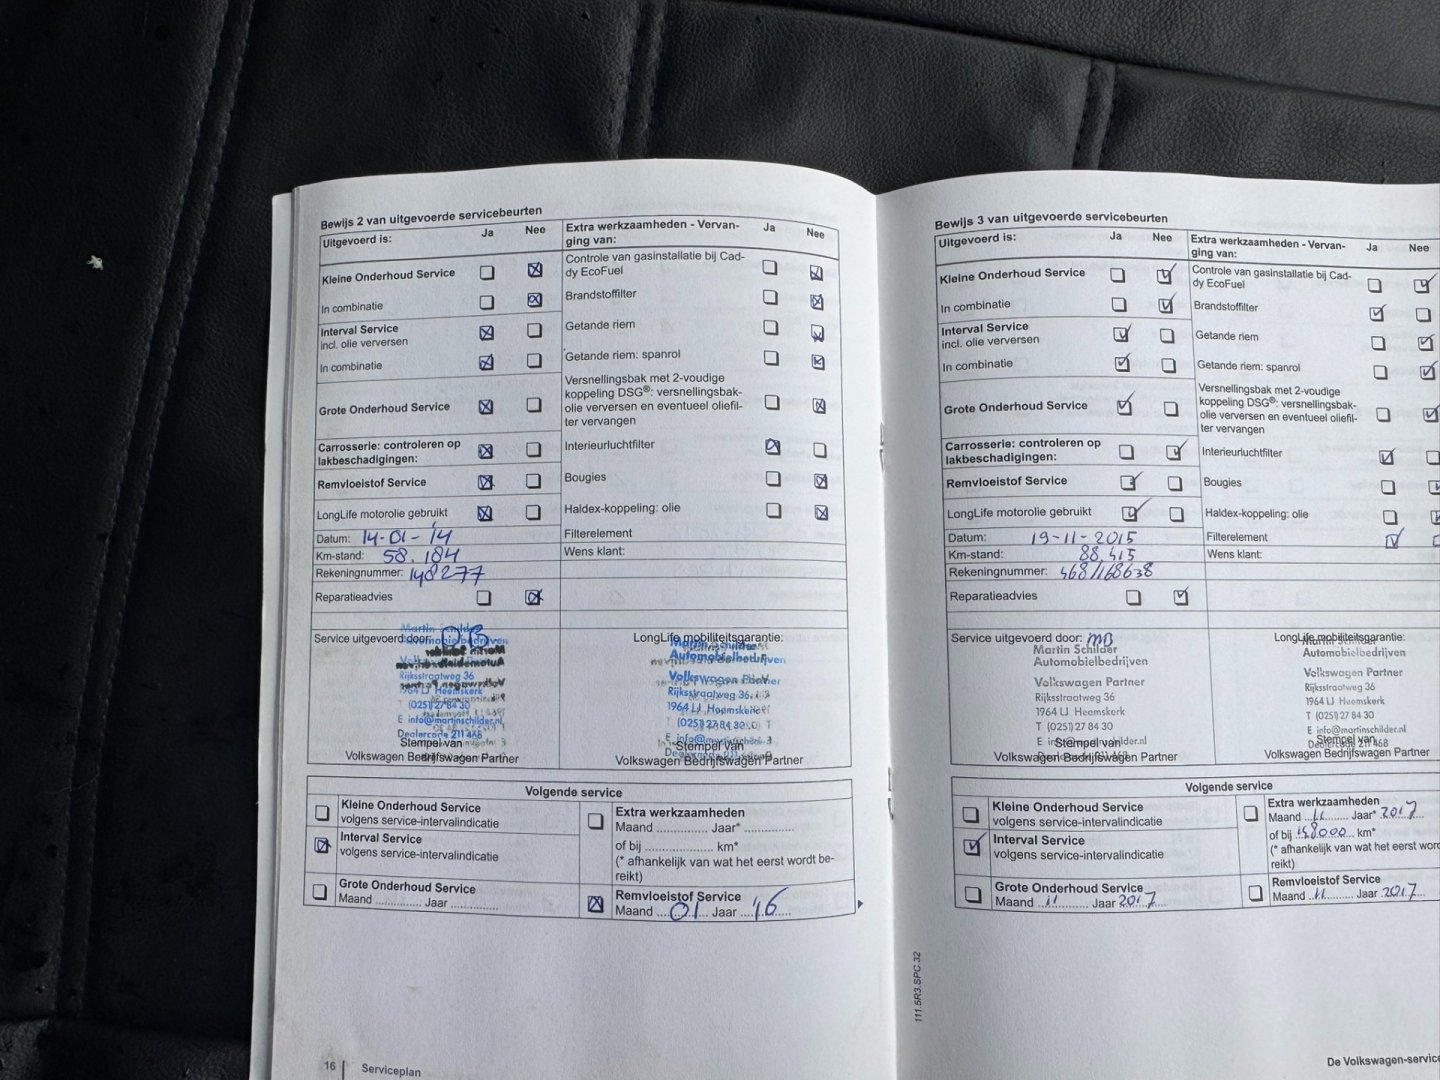 Bewijs 2 van uitgevoerde servicebeurten
Uitgevoerd is: Ja Nee
Kleine Onderhoud Service
In combinatie
Interval Service
incl. olie verversen
In combinatie
Grote Onderhoud Service
Carrosserie: controleren op
lakbeschadigingen:
Remvloeistof Service
LongLife motorolie gebruikt
Datum: 14-01-'14
Km-stand: 58.184
Rekeningnummer: 148277
Reparatieadvies
Extra werkzaamheden - Vervan-
ging van: Ja Nee
Controle van gasinstallatie bij Cad-
dy EcoFuel
Brandstoffilter
Getande riem
Getande riem: spanrol
Versnellingsbak met 2-voudige
koppeling DSG®: versnellingsbak-
olie verversen en eventueel oliefil-
ter vervangen
Interieurluchtfilter
Bougies
Haldex-koppeling: olie
Filterelement
Wens klant:
Service uitgevoerd door:
Martin Schilder
Automobielbedrijven
Rijksstraatweg 36
1964 LJ Heemskerk
(0251) 27 84 30
E info@martinschilder.nl
Dealercode 211 468
Stempel van
Volkswagen Bedrijfswagen Partner
LongLife mobiliteitsgarantie:
Martin Schilder
Automobielbedrijven
Volkswagen Partner
Rijksstraatweg 36
1964 LJ Heemskerk
(0251) 27 84 30
E info@martinschilder.nl
Stempel van
Volkswagen Bedrijfswagen Partner
Volgende service
Kleine Onderhoud Service
volgens service-intervalindicatie
Interval Service
volgens service-intervalindicatie
Grote Onderhoud Service
Maand .............. Jaar ..............
Extra werkzaamheden
Maand .............. Jaar* ..............
of bij .................... km*
(* afhankelijk van wat het eerst wordt be-
reikt)
Remvloeistof Service
Maand 01 Jaar '16
16 Serviceplan
Bewijs 3 van uitgevoerde servicebeurten
Uitgevoerd is: Ja Nee
Kleine Onderhoud Service
In combinatie
Interval Service
incl. olie verversen
In combinatie
Grote Onderhoud Service
Carrosserie: controleren op
lakbeschadigingen:
Remvloeistof Service
LongLife motorolie gebruikt
Datum: 19-11-2015
Km-stand: 88.415
Rekeningnummer: 468/168638
Reparatieadvies
Extra werkzaamheden - Vervan-
ging van: Ja Nee
Controle van gasinstallatie bij Cad-
dy EcoFuel
Brandstoffilter
Getande riem
Getande riem: spanrol
Versnellingsbak met 2-voudige
koppeling DSG®: versnellingsbak-
olie verversen en eventueel oliefil-
ter vervangen
Interieurluchtfilter
Bougies
Haldex-koppeling: olie
Filterelement
Wens klant:
Service uitgevoerd door: MB
Martin Schilder
Automobielbedrijven
Volkswagen Partner
Rijksstraatweg 36
1964 LJ Heemskerk
T (0251) 27 84 30
E info@martinschilder.nl
Stempel van
Volkswagen Bedrijfswagen Partner
LongLife mobiliteitsgarantie:
Martin Schilder
Automobielbedrijven
Volkswagen Partner
Rijksstraatweg 36
1964 LJ Heemskerk
T (0251) 27 84 30
E info@martinschilder.nl
Stempel van
Dealercode 211 468
Volkswagen Bedrijfswagen Partner
Volgende service
Kleine Onderhoud Service
volgens service-intervalindicatie
Interval Service
volgens service-intervalindicatie
Grote Onderhoud Service
Maand 11 Jaar 2017
Extra werkzaamheden
Maand 11 Jaar* 2017
of bij 148000 km*
(* afhankelijk van wat het eerst word
reikt)
Remvloeistof Service
Maand 11 Jaar 2017
111.5R3.SPC.32
De Volkswagen-service